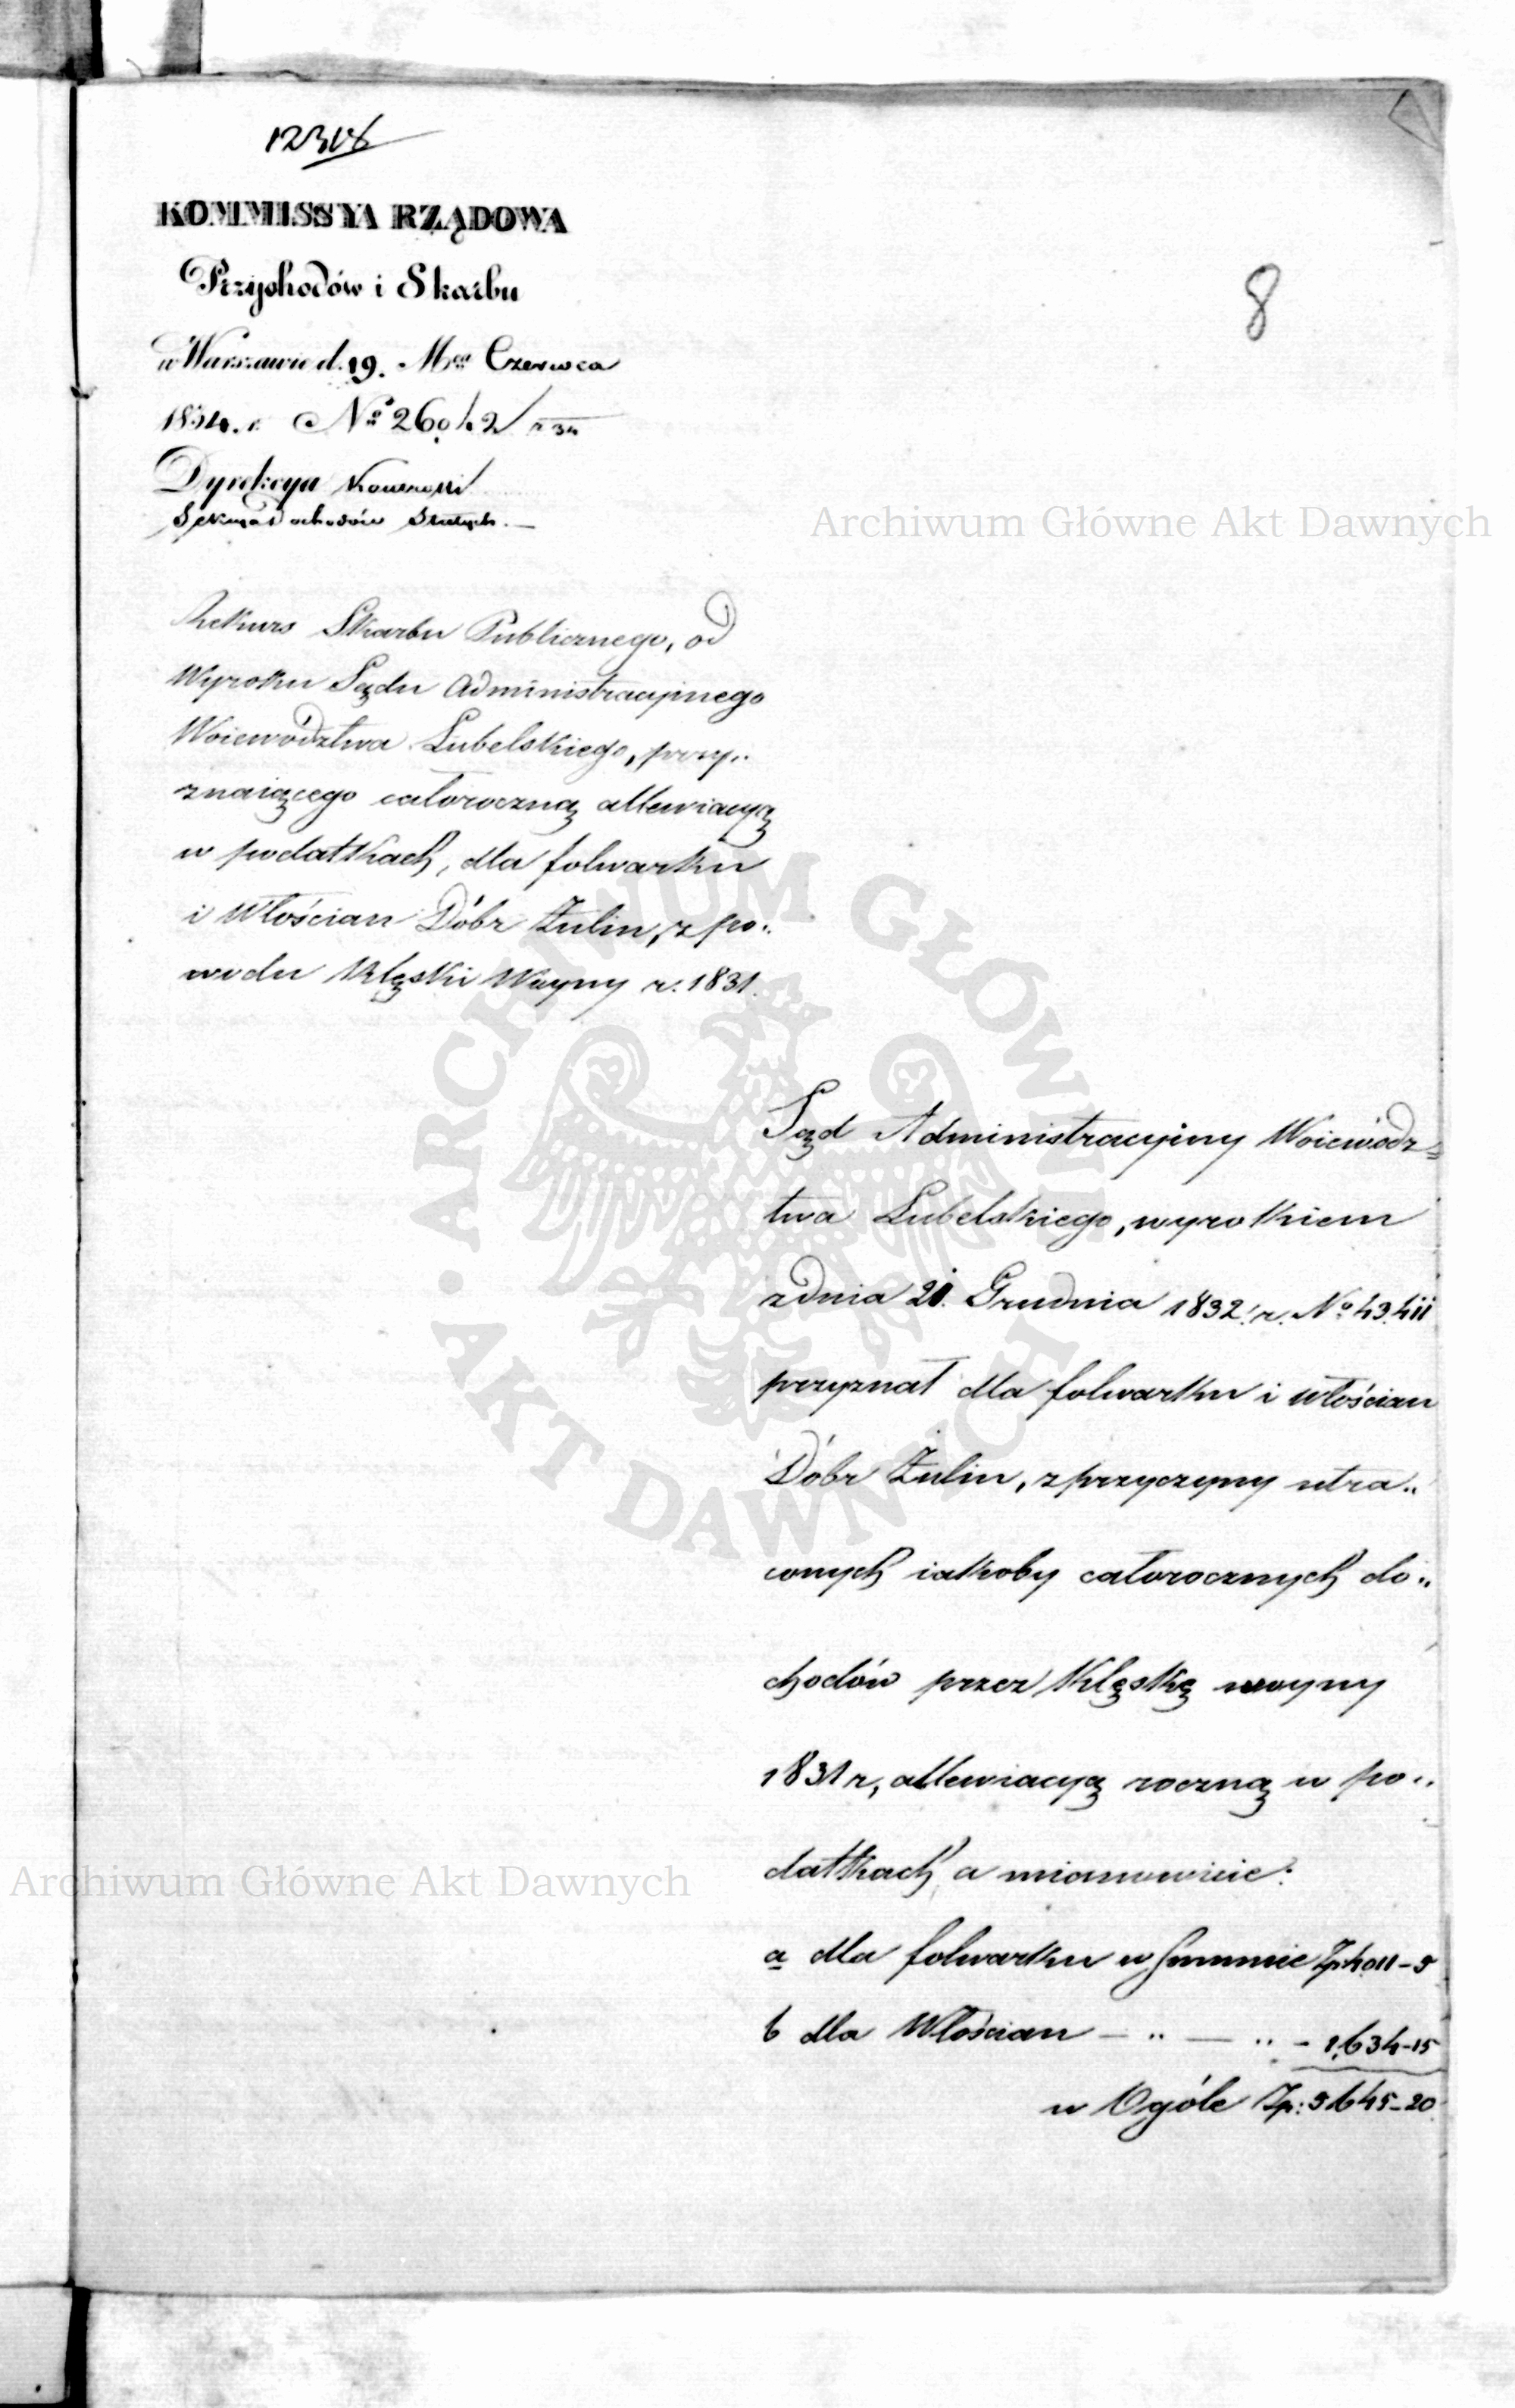 KOMMISSYA RZĄDOWA
Przychodów i Skarbu
w Warszawie d. 19. Mca Czerwca
1834. r. No 26042/
Dyrekcya
8
Archiwum Główne Akt Dawnych
Rekurs Skarbu Publicznego, od
Wyroku Sądu Administracyinego
Woiewództwa Lubelskiego, przy„
znaiącego całoroczną allewiacyą
w podatkach, dla folwarku
i Włościan Dóbr Żulin, z po„
wodu klęski Woyny r. 1831.
ARCHIWUM GŁÓWNE AKT DAWNYCH
Sąd Administracyiny Woiewódz=
twa Lubelskiego, wyrokiem
z dnia 21. Grudnia 1832. r. No 43.411
przyznał dla folwarku i włościan
Dóbr Żulin, z przyczyny utra„
conych iakoby całorocznych do„
chodów przez klęskę woyny
1831 r, allewiacyą roczną w po„
datkach a mianowicie:
a dla folwarku w Summie Zp. 4011-5
b dla Włościan — „ — „ - 1,634-15
w Ogóle Zp: 5645-20
Archiwum Główne Akt Dawnych